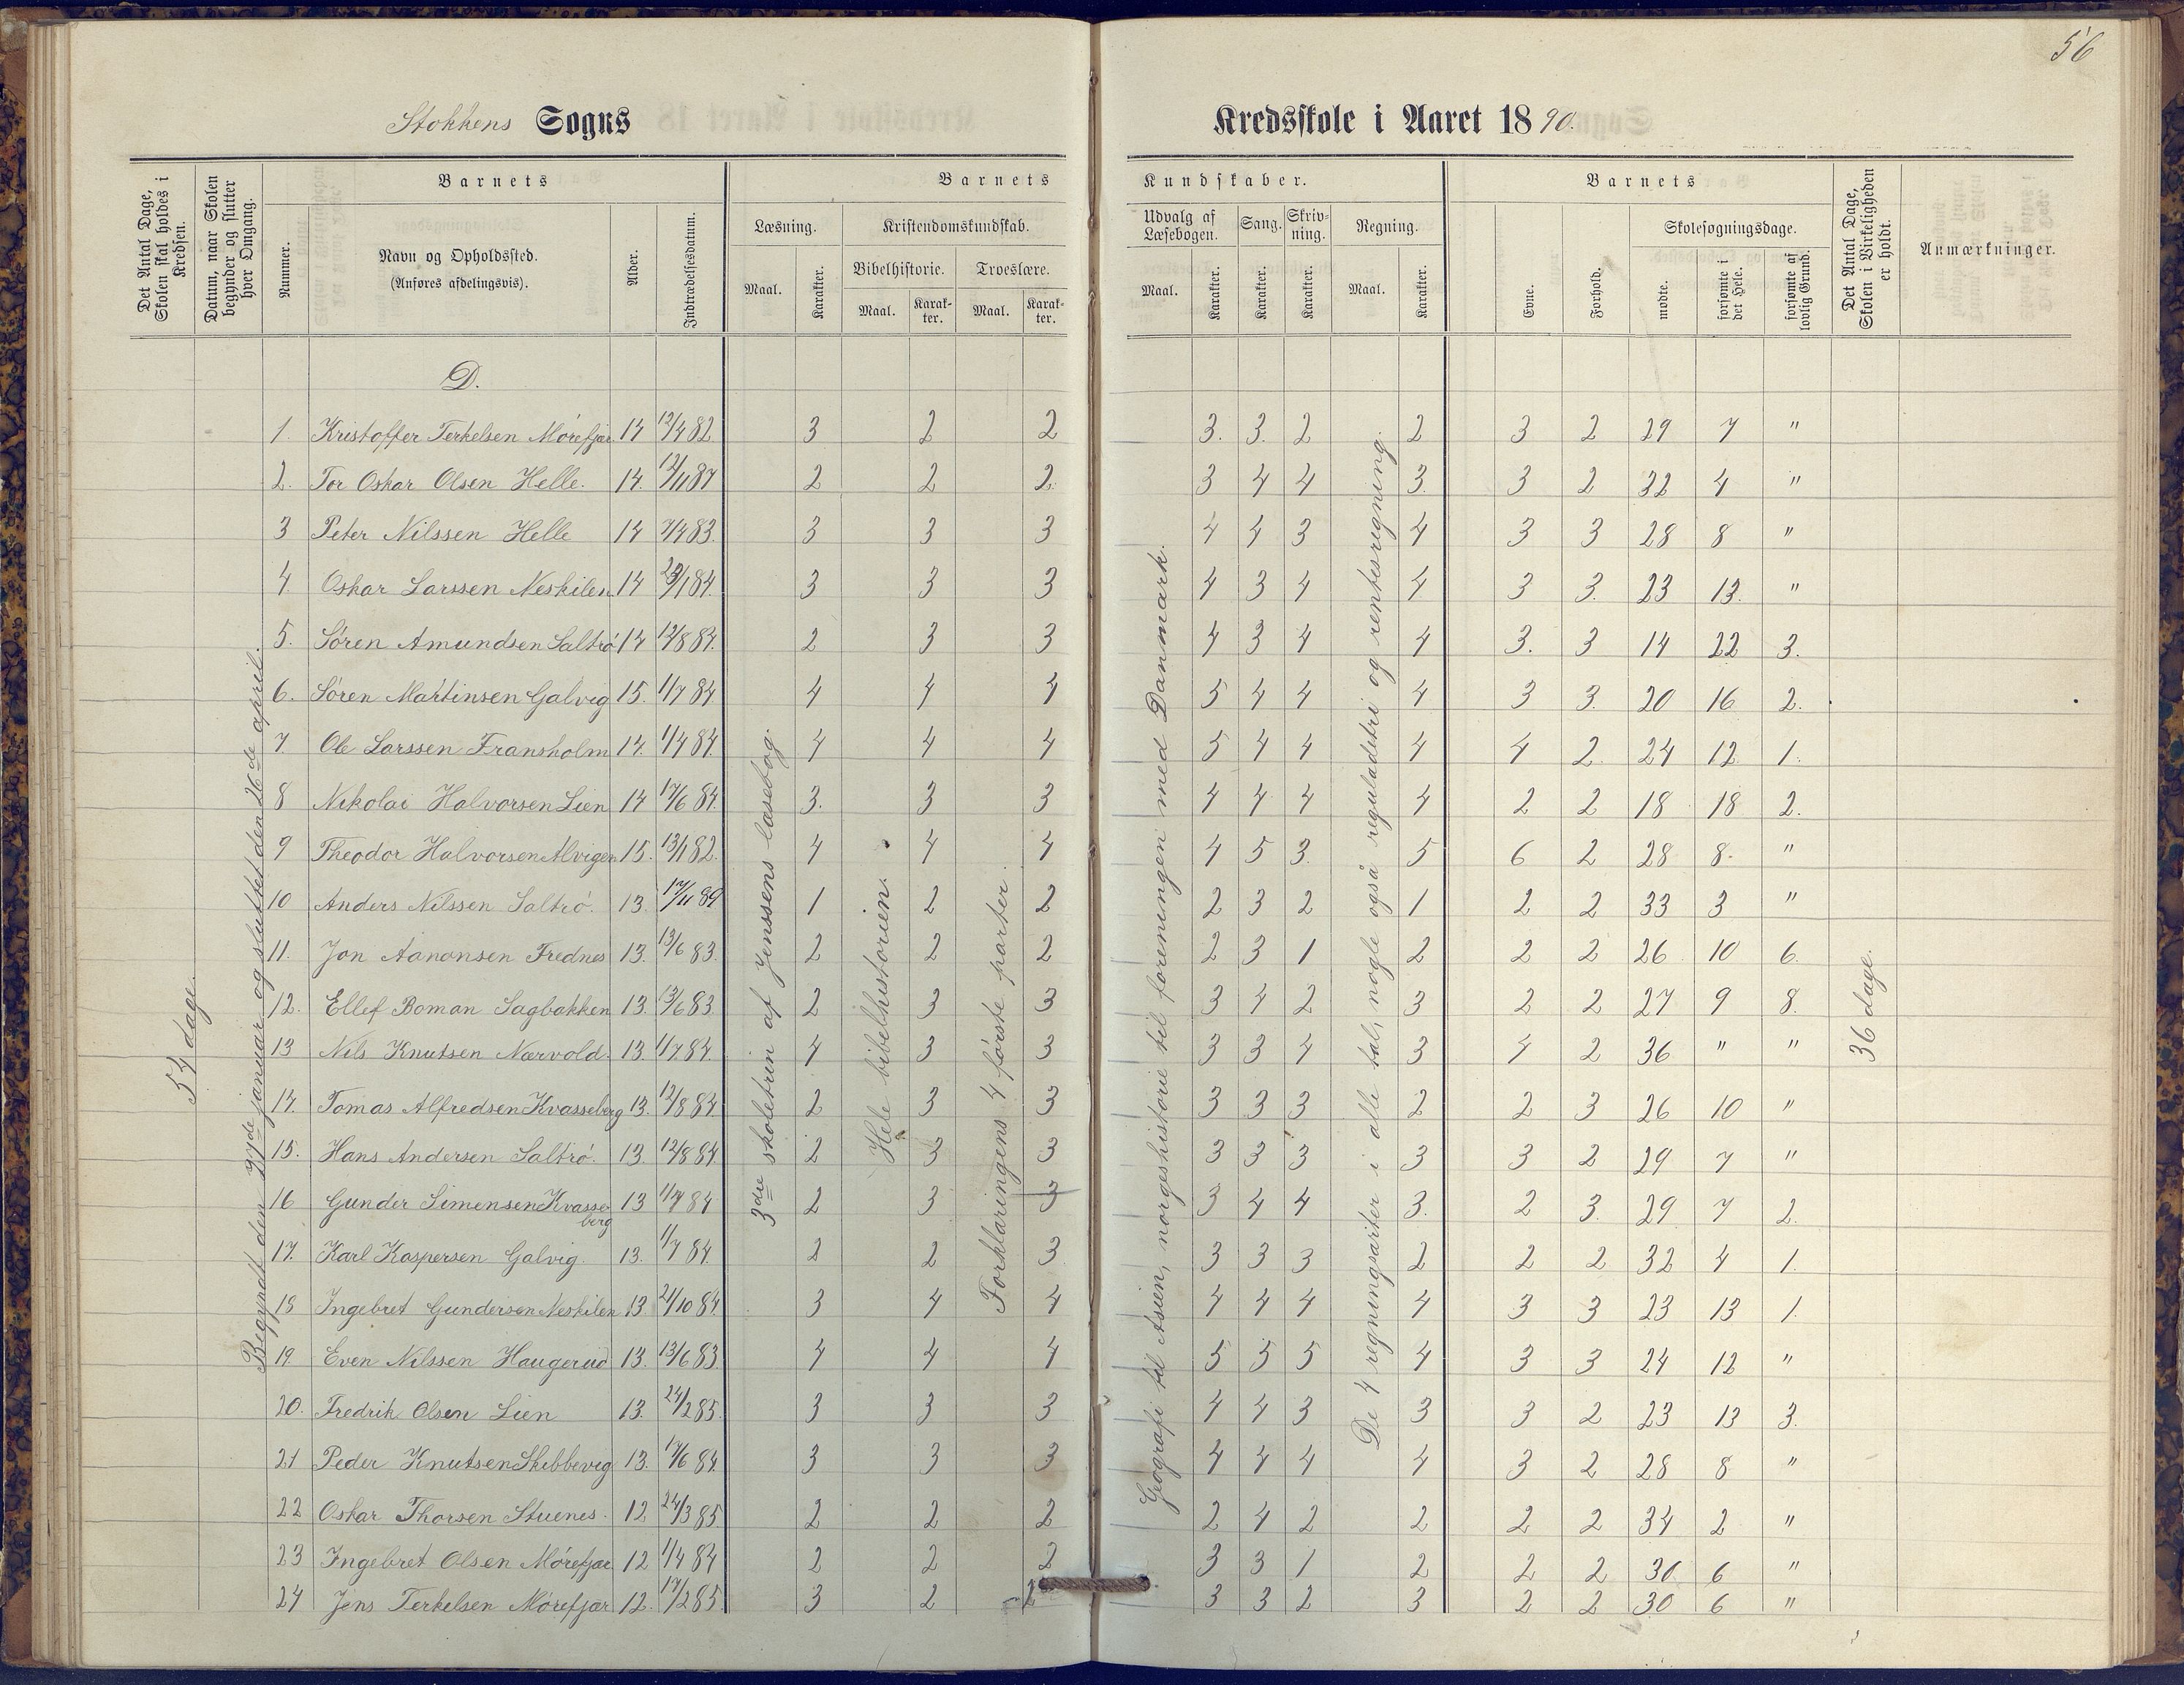 56
Stokkens Sogns Kredsskole i Aaret 1890.
Det Antal Dage, Skolen skal holdes i Kredsen.
Datum, naar Skolen begynder og slutter hver Omgang.
Barnets
Nummer.
Navn og Opholdssted. (Anføres afdelingsvis).
Alder.
Indtrædelsesdatum.
Barnets Kundskaber.
Læsning.
Maal.
Karakter.
Kristendomskundskab.
Bibelhistorie.
Maal.
Karakter.
Troeslære.
Maal.
Karakter.
Udvalg af Læsebogen.
Maal.
Karakter.
Sang.
Karakter.
Skrivning.
Karakter.
Regning.
Maal.
Karakter.
Barnets
Evne.
Forhold.
Skolesøgningsdage.
mødte.
forsømte i det Hele.
forsømte af lovlig Grund.
Det Antal Dage, Skolen i Virkeligheden er holdt.
Anmærkninger.
54 dage.
januar og sluttet den 26de april.
3die skoletrin af Jenssens læsebog.
Hele bibelhistorien.
Forklaringens 4 første parter.
Geografi til Asien, norgeshistorie til foreningen med Danmark.
De 4 regningsarter i alle tal, nogle også reguladetri og rentesregning.
36 dage.
D.
1. Kristoffer Terkelsen Mørefjær 14 12/4 82 3 2 2 3. 3. 2 2 3 2 29 7 "
2. Tor Oskar Olsen Helle. 14. 12/11 87 2 2 2. 3 4 4 3. 3 2 32 4 "
3 Peter Nilssen Helle 14 7/4 83. 3 3 3 4 4 3 4 3 3 28 8 "
4. Oskar Larssen Neskilen 14 /1 84. 3 3 3 4 3 4 4 3 3. 23 13. "
5. Søren Amundsen Saltrø 14 12/8 84. 2 3 3 4 3 4 4 3. 3 14 22 3.
6. Søren Martinsen Galvig 15. 1/7 84 4 4 4 5 4 4 4 3 3. 20 16 2.
7. Ole Larssen Fransholm 14. 1/4 84. 4 4 4 5 4 4 4 4 2. 24 12 1.
8 Nikolai Halvorsen Lien 14 17/6 84. 3. 3 3 4 4 4 4 2 2 18 18 2.
9 Theodor Halvorsen Alvigen 15. 13/1 82. 4 4 4 4 5 3. 5 6 2 28 8. "
10 Anders Nilssen Saltrø. 13. 12/11 89 1 2 2 2 3 2 1 2 2 33 3 "
11. Jon Aanonsen Frednes 13. 13/6 83. 2 2 2 2 3 1 2 2 2 26 10 6.
12. Ellef Boman Sagbakken 13. 13/6 83. 2 3 3 3 4 2 3 2 2 27 9 8.
13 Nils Knutsen Nærvold. 13. 1/7 84. 4 3 3 3 3 4 3 4 2 36 " "
14. Tomas Alfredsen Kvasseberg 13. 12/8 84. 2 3 3 3 3 3 2 2 3 26 10 "
15. Hans Andersen Saltrø. 13. 12/8 84. 2 3 3 3 3 3 3 3 2 29 7 "
16 Gunder Simensen Kvasseberg 13 1/7 84 2 3 3 3 4 4 3. 2 3. 29 7 2.
17. Karl Kaspersen Galvig. 13. 1/7 84. 2 2 3. 3 3 3 2 2 2 32 4 1.
18 Ingebret Gundersen Neskilen 13. 21/10 84 3 4 4 4 4 4 4 3 3 23 13 1.
19. Even Nilssen Haugerud 13. 13/6 83 4 4 4 5 5 5 4 3 3 24 12 "
20. Fredrik Olsen Lien 13. 24/2 85. 3 3 3 4 4 3 3 3 2 23 13 3.
21 Peder Knutsen Skibbevig 13. 17/6 84. 3 3 3 4 4 4 4 3 2 28 8 "
22 Oskar Thorsen Stuenes. 12 24/3 85 2 2 2 2 4 2 2 2 2 34 2 "
23 Ingebret Olsen Mørefjær 12 1/4 84 2 2 2 3 3 1 2 2 2 30 6 "
24 Jens Terkelsen Mørefjær 12. 17/2 85 3 2 2 3 3 2 3 2 2 30 6 "